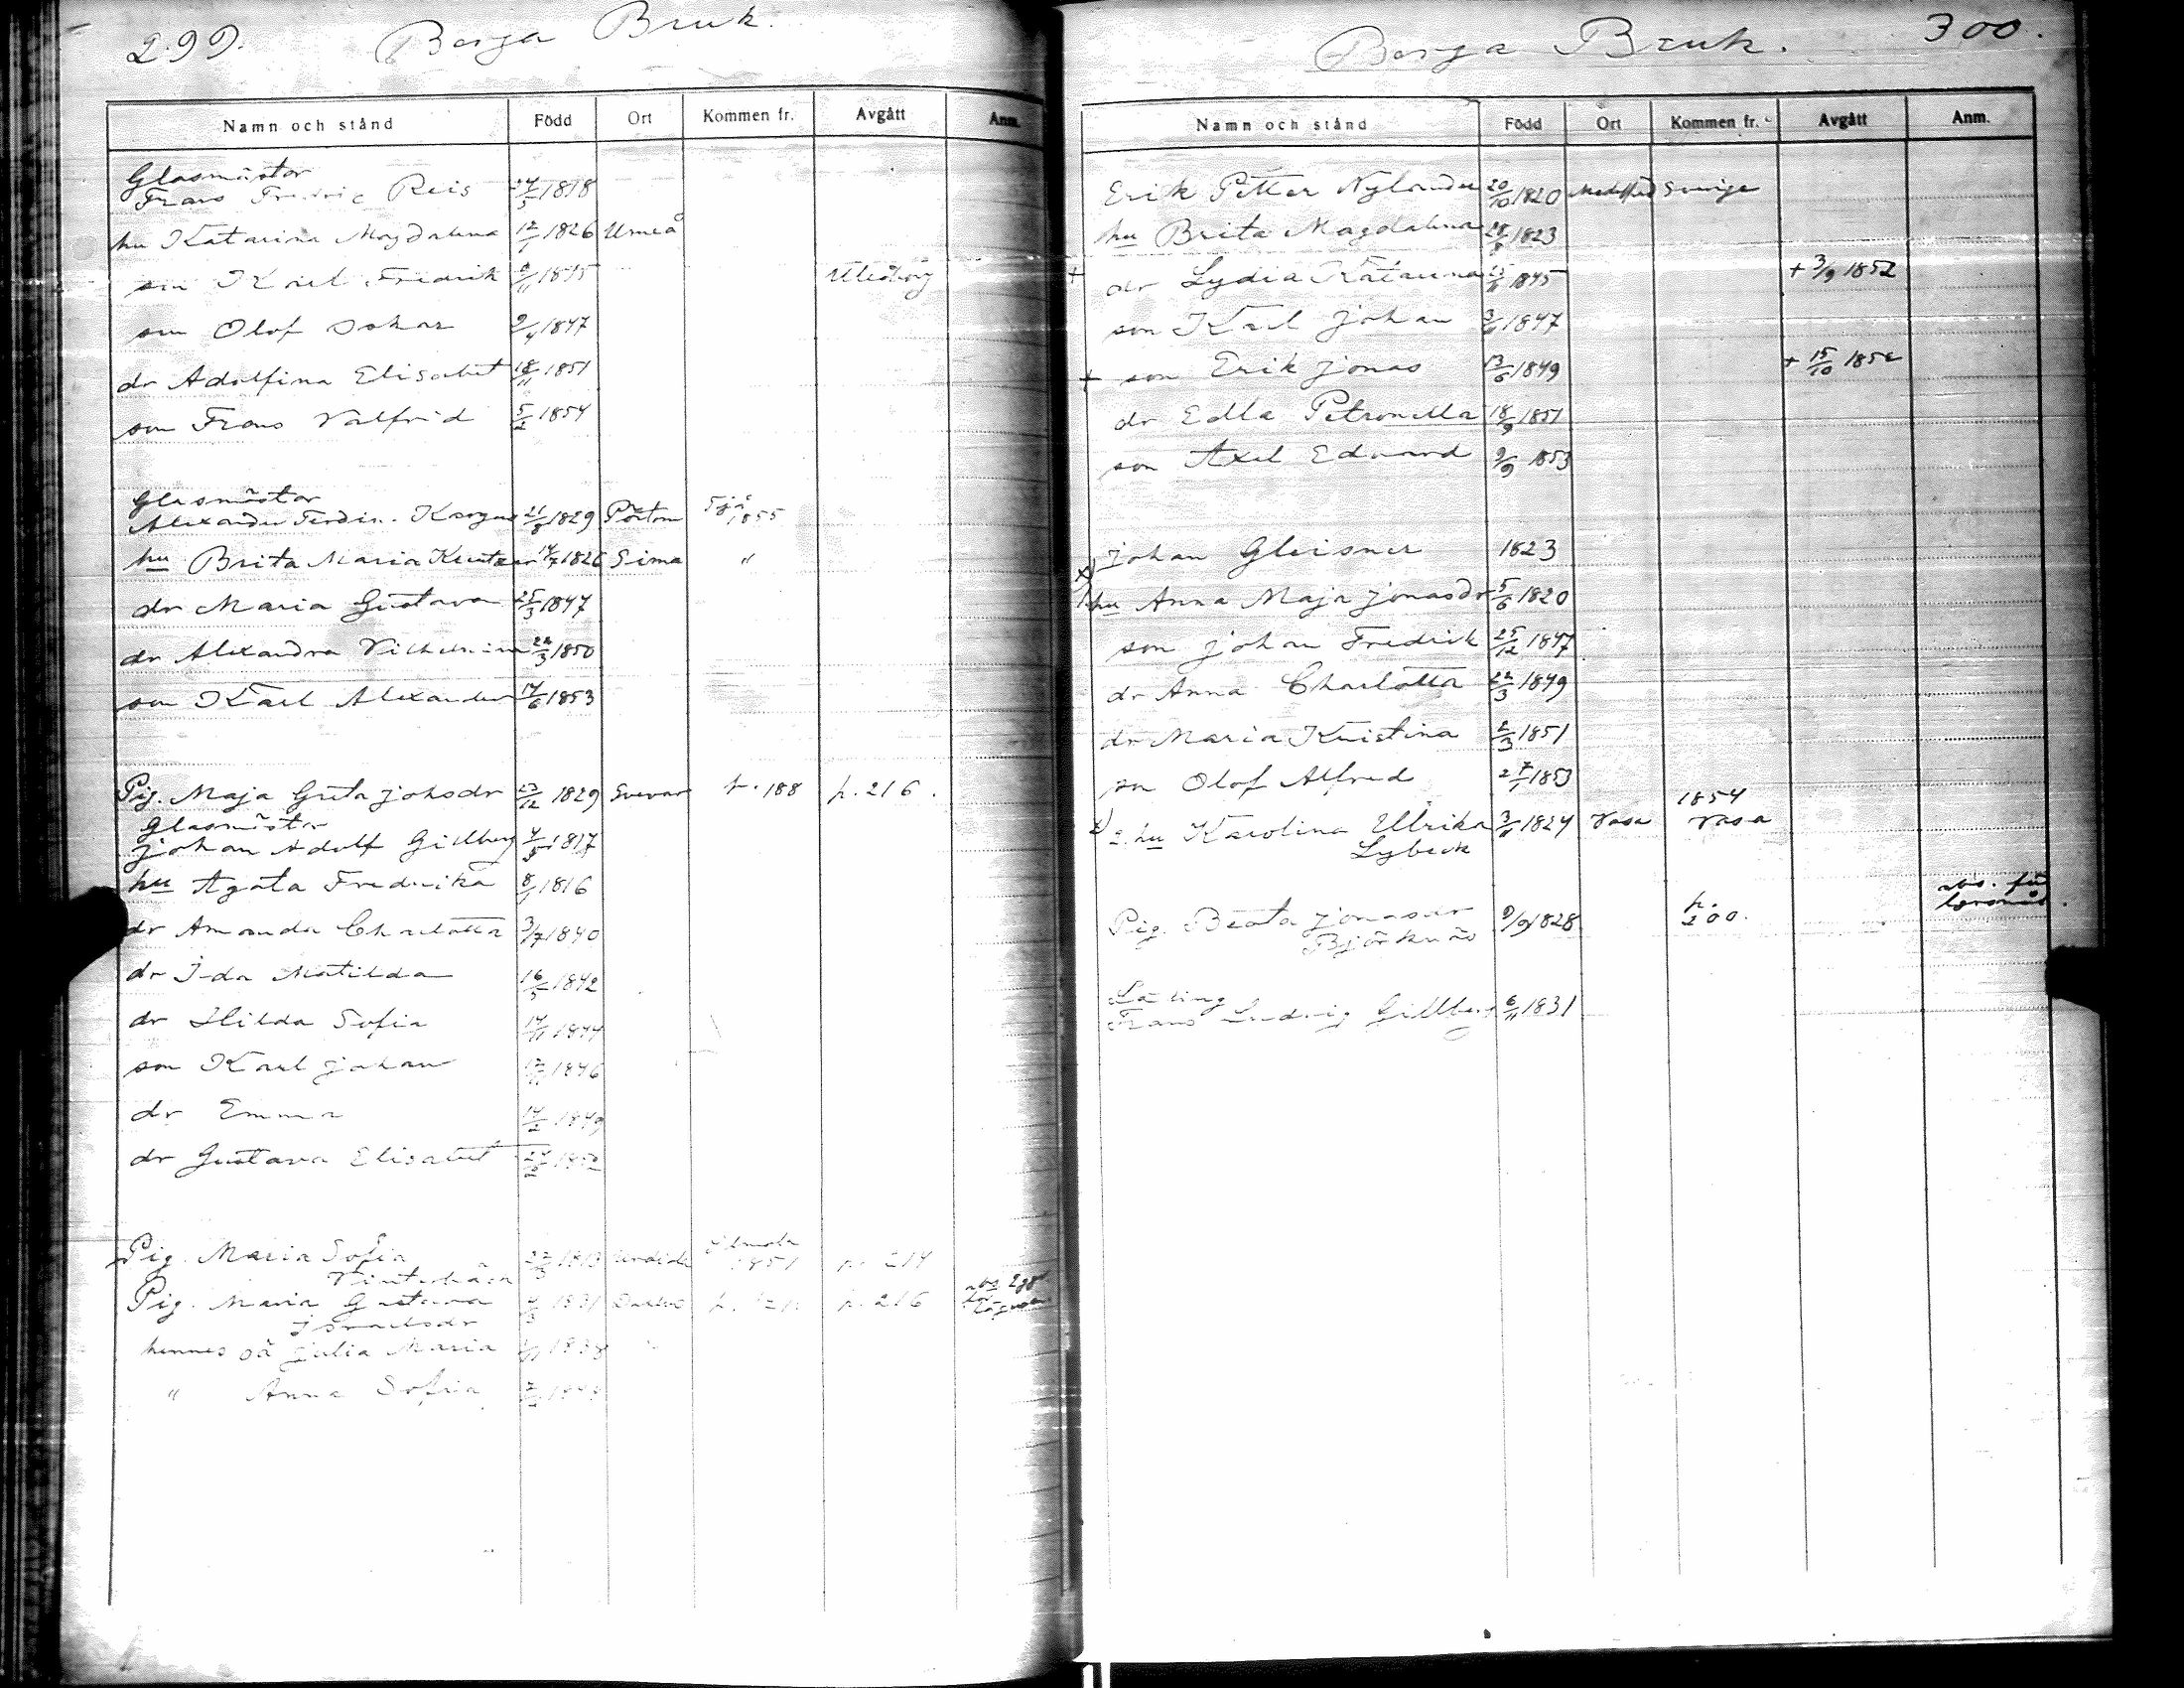 299.
Borga Bruk.
Namn och stånd Född Ort Kommen fr. Avgått Anm.
Glasmästar
Frans Fredric Reis 1818
hu Katarina Magdalena 12/1 1826 Umeå
son Karl Fredrik 1845 Uleåborg
son Olof Oskar 2/4 1847
dr Adolfina Elisabet 18/11 1851
son Frans Valfrid 5/2 1854
Glasmästar
Alexander Ferdin. 21/8 1829 Pörtom 1855
hu Brita Maria 14/7 1826 Sima "
dr Maria Gustava 25/3 1847
dr Alexandra Vilhelmina 22/3 1850
son Karl Alexander 14/6 1853
Pig. Maja Greta Johsdr 23/12 1829 p. 188 p. 216.
Glasmästar
Johan Adolf Gillberg 1817
hu Agata Fredrika 8/1 1816
dr Amanda Charlotta 3/7 1840
dr Ida Matilda 16/5 1842
dr Hilda Sofia 14/11 1844
son Karl Johan 1846
dr Emma 14/2 1849
dr Gustava Elisabet 1852
Pig. Maria Sofia 1851 p. 214
Pig. Maria Gustava 1831 p. 216
Israelsdr
hennes oä Julia Maria
" Anna Sofia
Borga Bruk.
300.
Namn och stånd Född Ort Kommen fr. Avgått Anm.
Erik Petter Nylander 20/10 1820 Sverige
hu Brita Magdalena 1823
+ dr Lydia Katarina 1845 + 3/9 1852
son Karl Johan 1847
+ son Erik Jonas 13/6 1849 + 15/10 1852
dr Edla Petronella 18/9 1851
son Axel Edvard 9/9 1853
Johan Gleisner 1823
hu Anna Maja Jonasdr 5/6 1820
son Johan Fredrik 25/12 1847
dr Anna Charlotta 22/3 1849
dr Maria Kristina 2/3 1851
son Olof Alfred 1853
1854
2. hu Karolina Ulrika 1824 Vasa Vasa
Lybeck
Pig. Beata Jonasdr 9/9 1828 p. 200.
Björknäs
Lärling
Frans Ludvig Gillberg 6/11 1831